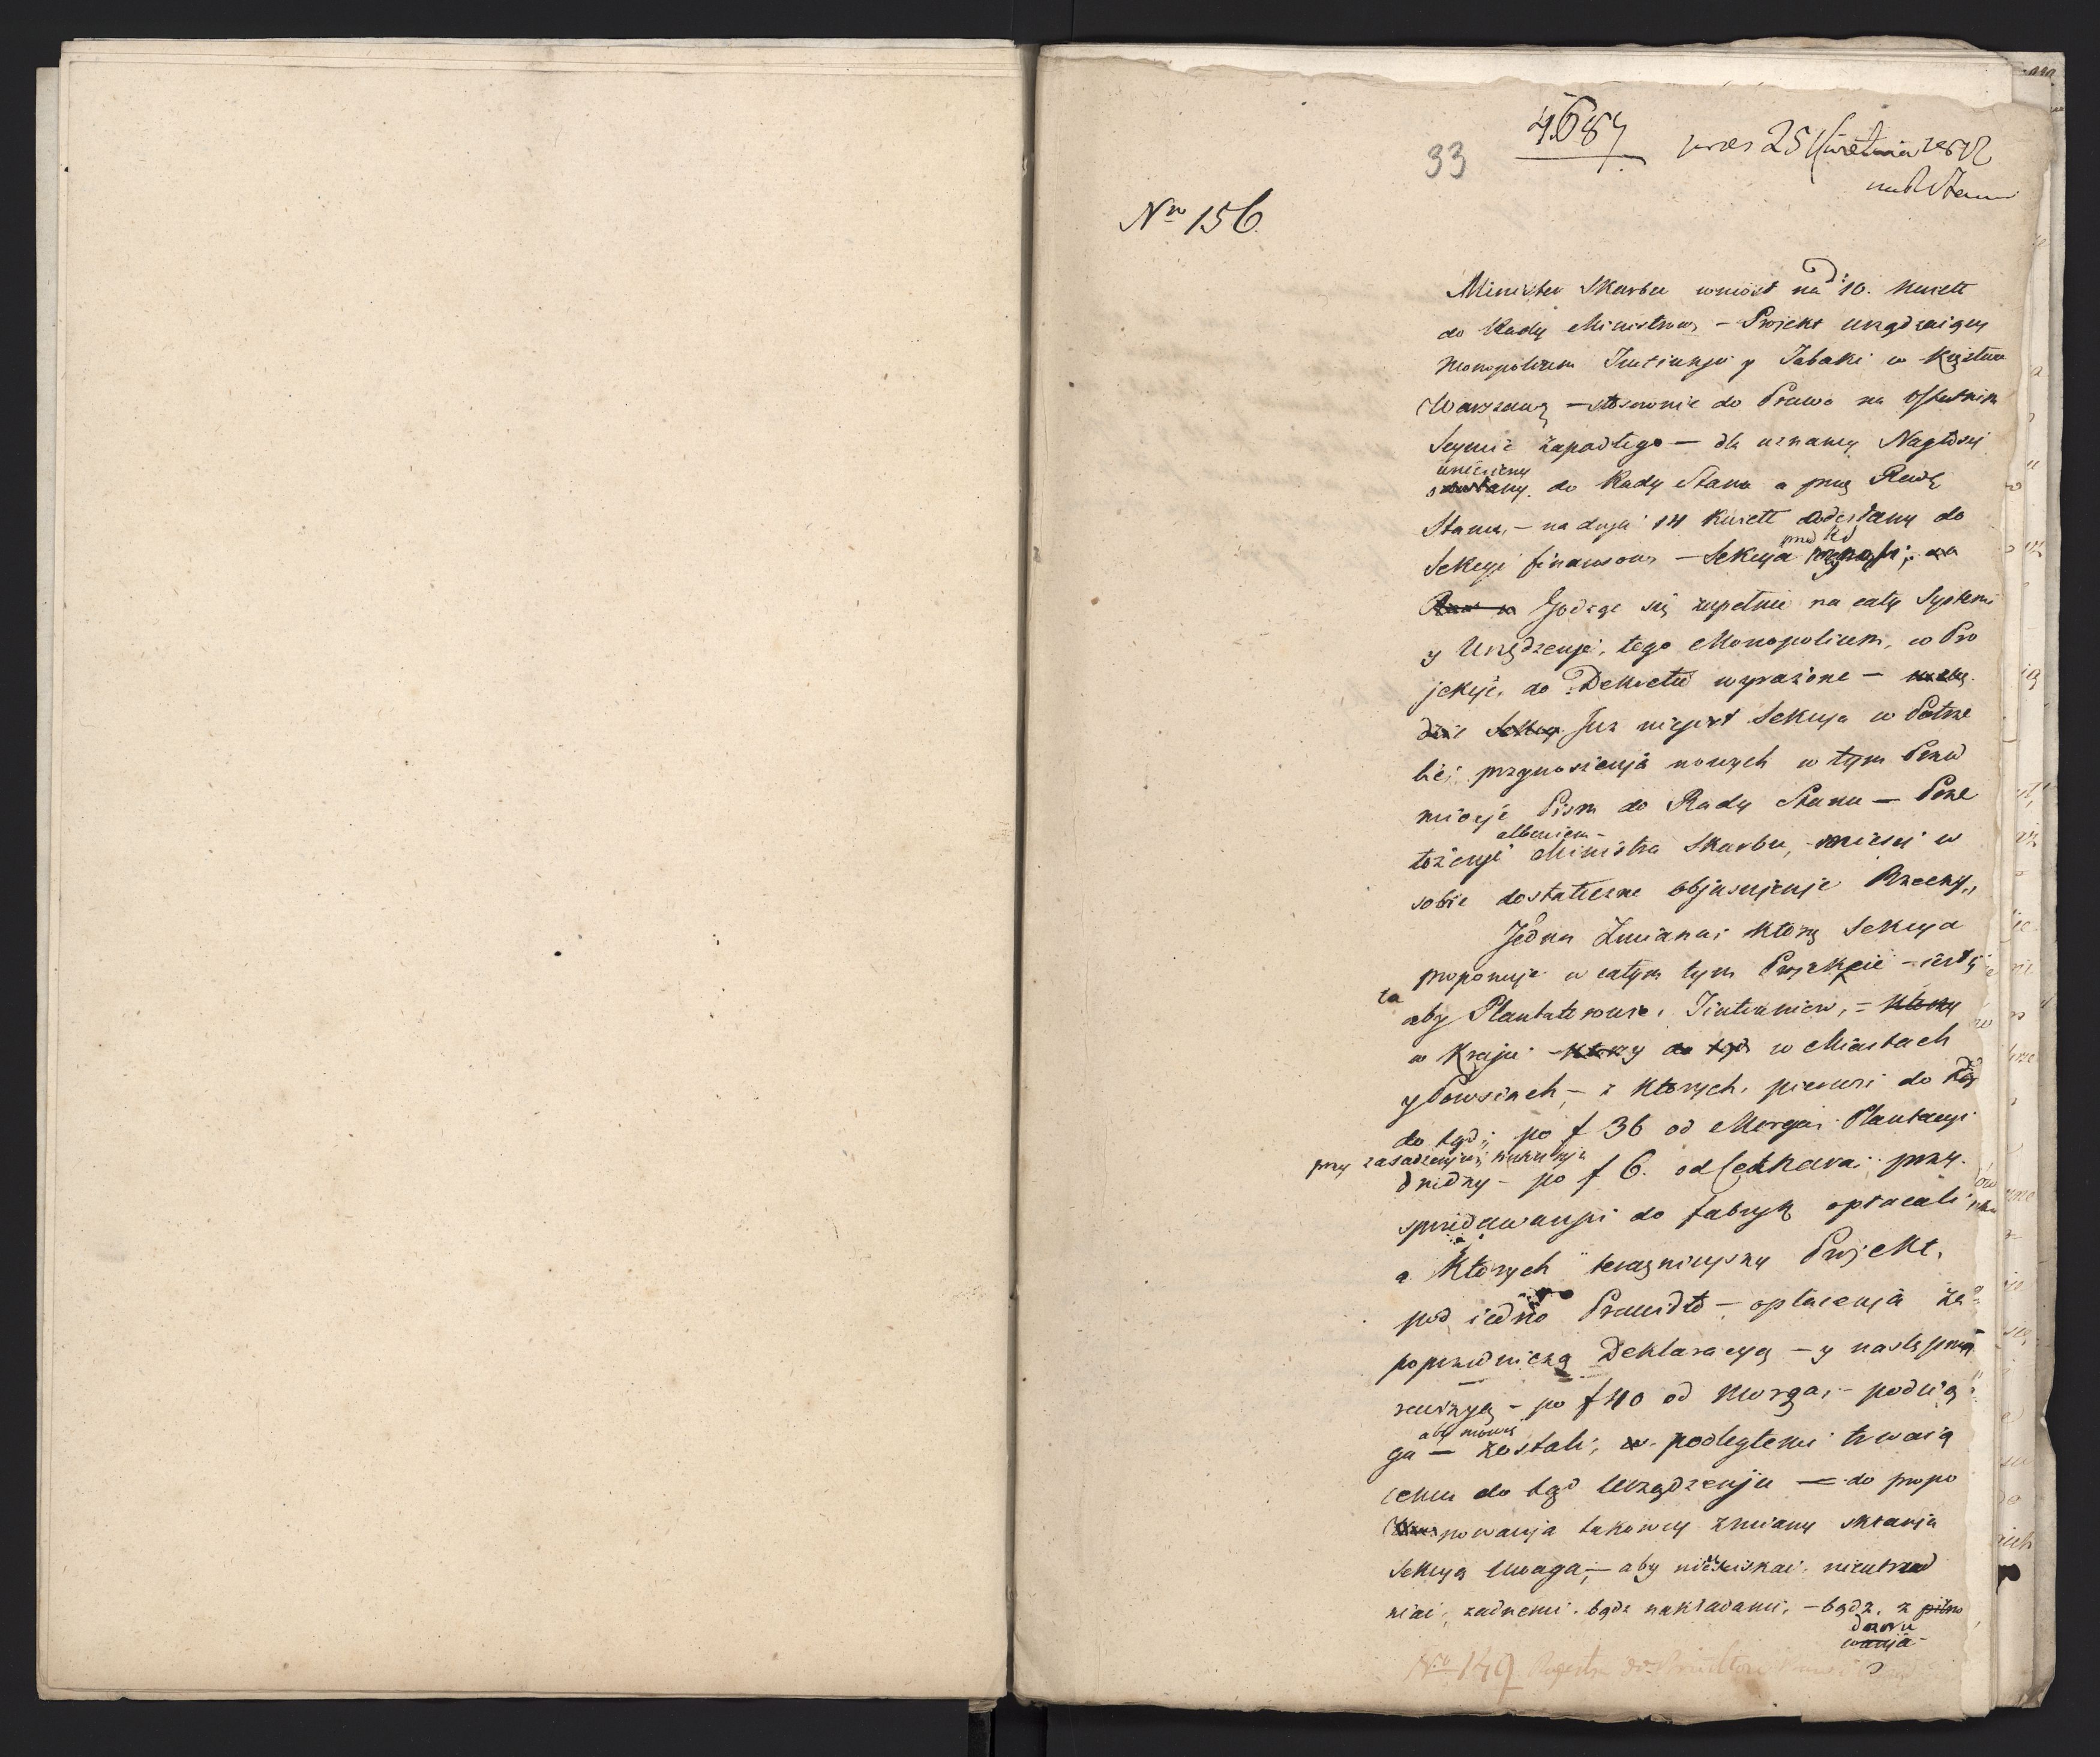 4687
33
25 Kwietnia 1812
Nro 156.
Minister Skarbu wniosł na d: 10. Kwiet
do Rady Ministrów – Projekt urządzaiący
Monopolium Tutiunju y Tabaki w Xięstwie
Warszawsz – stosownie do Prawa na ostatnim
Seymie zapadłego – dla uznaney Nagłosci
wniesiony
do Rady Stanu a przez Radę
Stanu, – na dnju 14 Kwiett odesłany do
Sekcyi finansow – Sekcya
Godząc się zupełnie na cały System
y Urządzenje, tego Monopolium, w Pro
jekcje, do Dekretu wyrażone –
Juz niejest Sekcya w Potrze
bie; przynoszenja nowych w tym Przed
miocje Pism do Rady Stanu – Prze
albowiem –
łożenje Ministra Skarbu, miesci w
sobie dostateczne objasnjenje Rzeczy,,
Jedna Zmiana; którą Sekcya
proponuje w całym tym Projekcie – jest
ta
aby Plantatorowie, Tiutiuniow, –
w Kraju – w Miastach
y Powsiach, – z których, pierwsi do
do tąd; po f 36 od Morga; Plantacyi
przy zasadzenju;
drudzy – po f 6. od Cetnara; przy
sprzedawanju do fabryk opłacali
a których teraznieyszy Projekt,
pod iedno Prawidło – opłacenja za
poprzedniczą Deklaracyą – y następną
rewizyą – po f 40 od Morga, – podcią
aby mowię
ga – zostali, podległemi trwaią
cemu do tąd Urządzenju – do propo
nowanja takowey zmiany skłanja
Sekcyą Uwaga, – aby nieuciskac, nieutrud
niac, zadnemi, bądz nakładami, – bądz, z
dozoru
wanja –
No 149